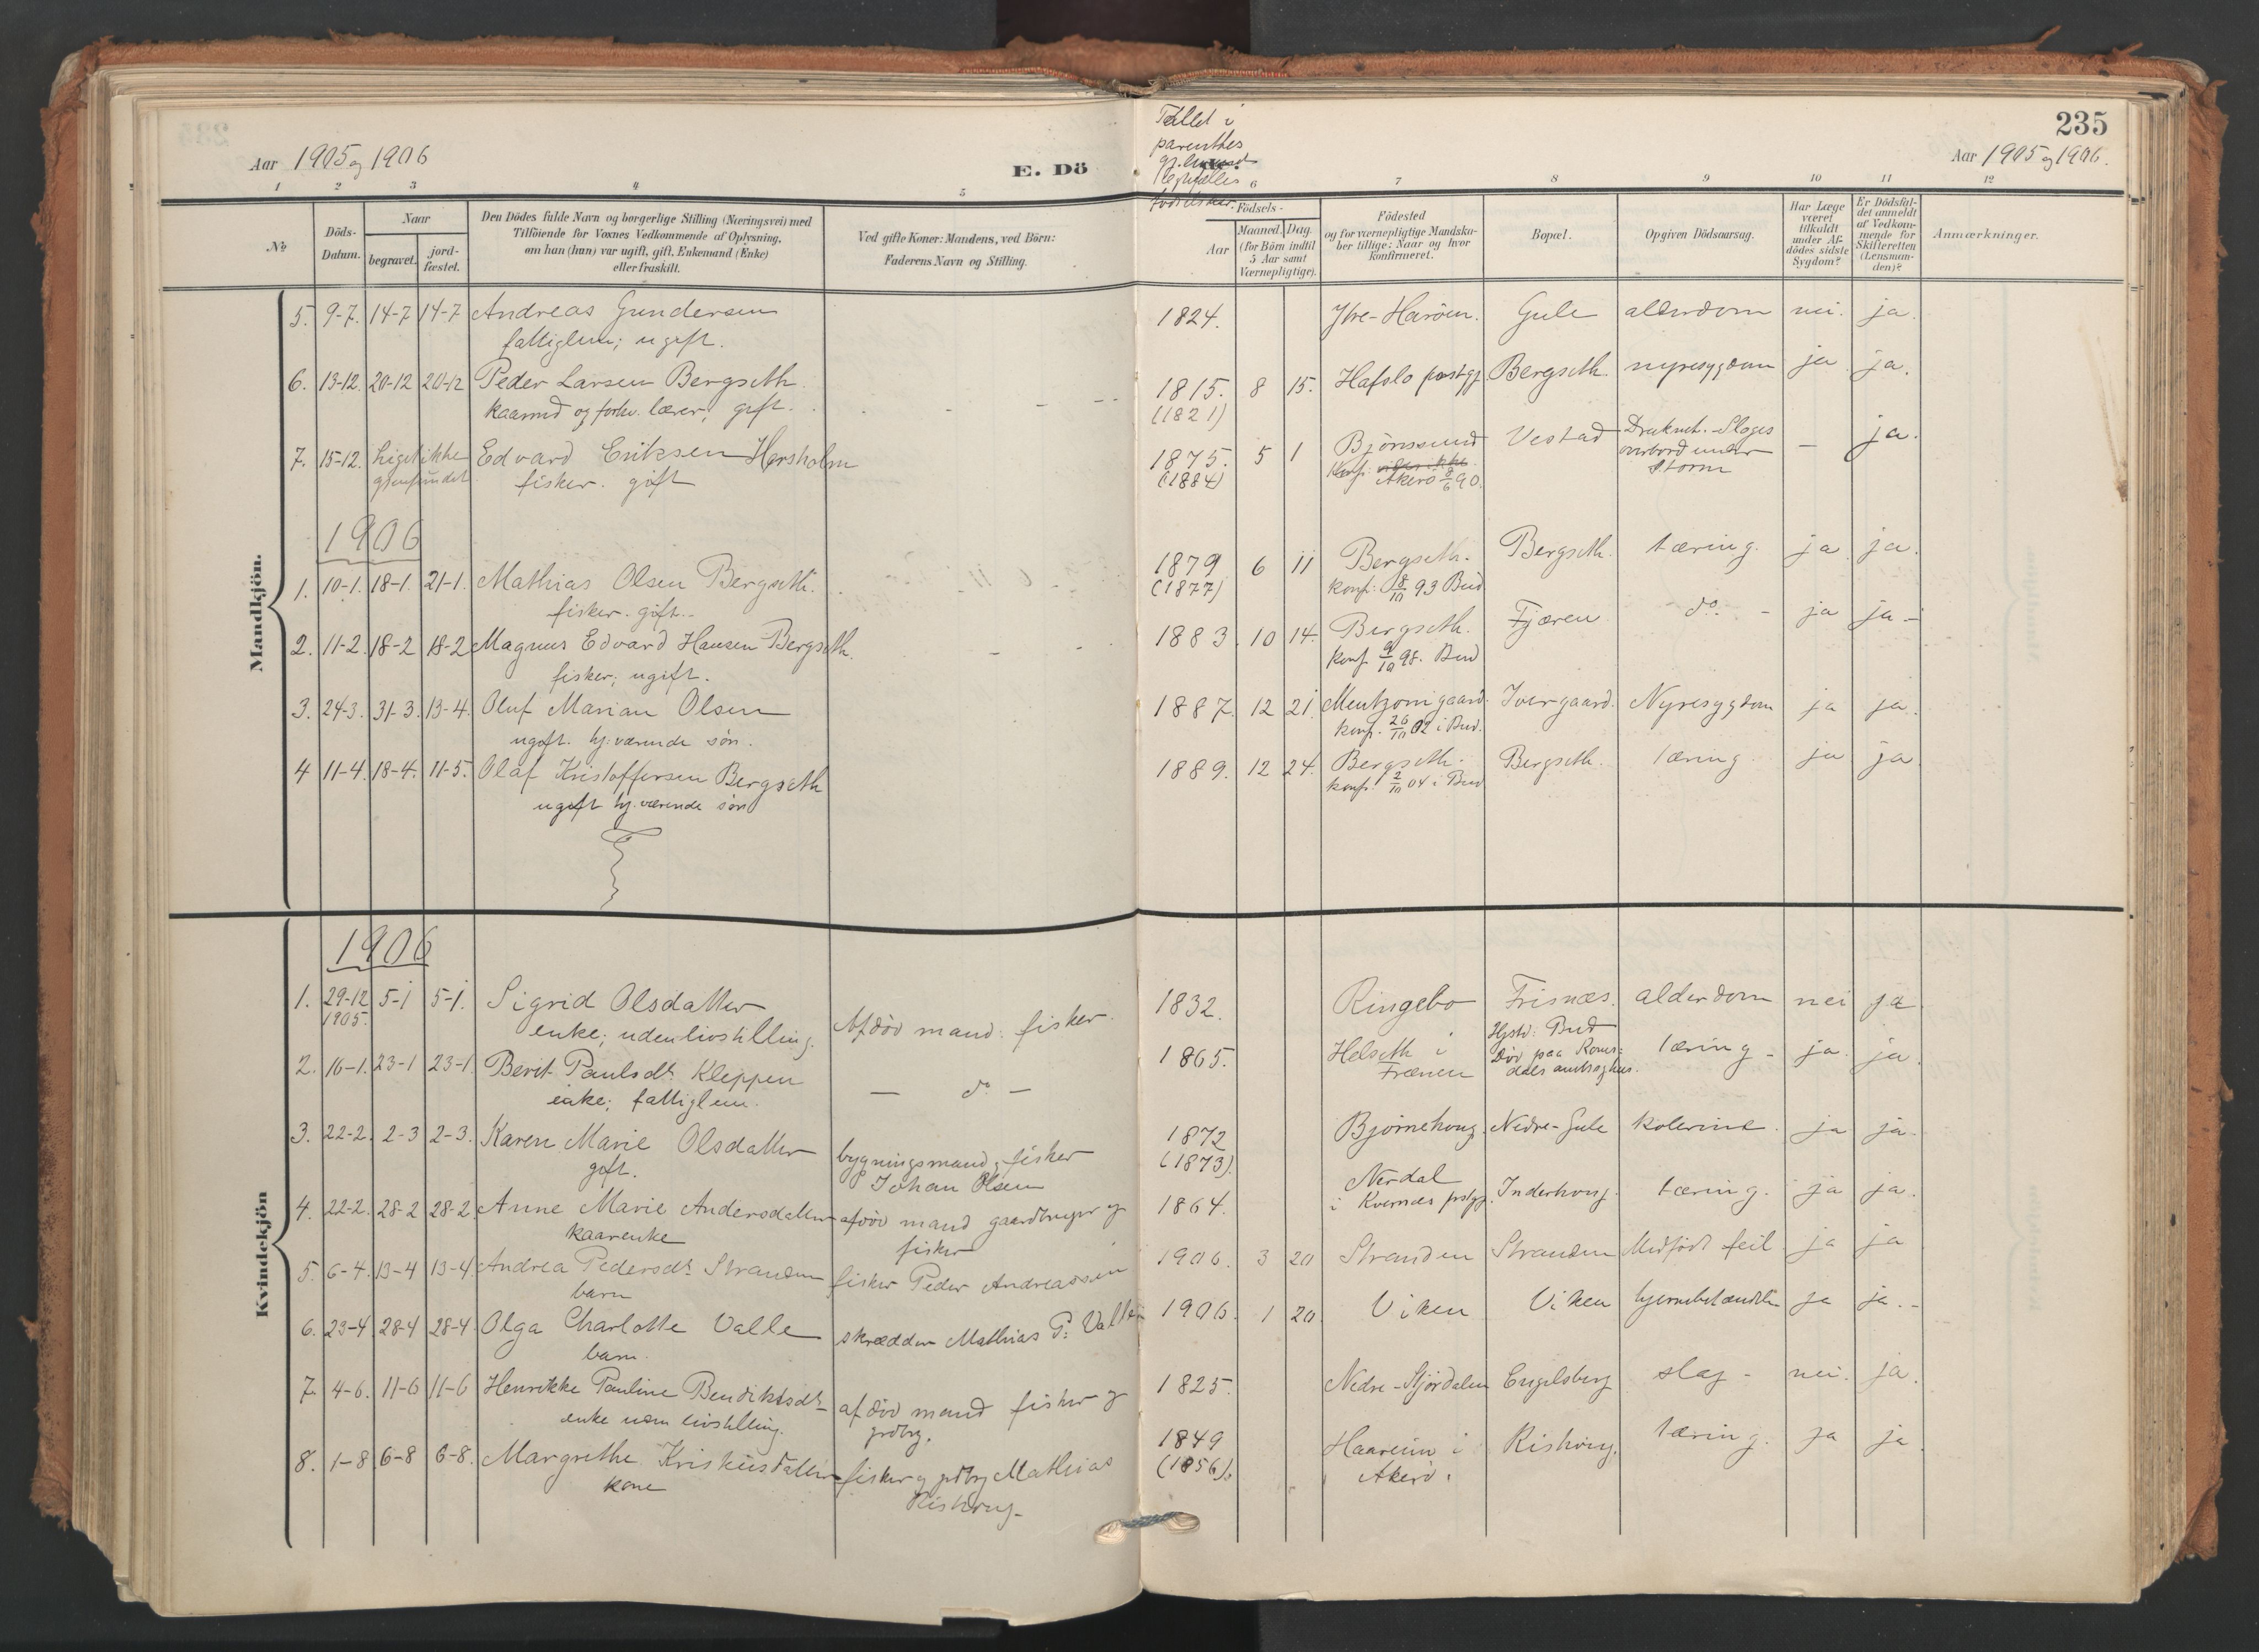 Aar 1905 og 1906
E. Dö
Tallet i
parenthes
235
Aar 1905 og 1906.
1 2 3 4 5 6 7 8 9 10 11 12
No
Döds-
Datum.
Naar
begravet.
jord-
fæstet.
Den Dödes fulde Navn og borgerlige Stilling (Næringsvei) med
Tilföiende for Voxnes Vedkommende af Oplysning,
om han (hun) var ugift, gift, Enkemand (Enke)
eller fraskilt.
Ved gifte Koner: Mandens, ved Börn:
Faderens Navn og Stilling.
Födsels-
Aar
Maaned. Dag.
(for Börn indtil
5 Aar samt
Værnepligtige).
Födested
og for værnepligtige Mandska-
ber tillige: Naar og hvor
konfirmeret.
Bopæl.
Opgiven Dödsaarsag.
Har Læge
været
tilkaldt
under Af-
dödes sidste
Sygdom?
Er Dödsfal-
det anmeldt
af Vedkom-
mende for
Skifteretten
(Lensman-
den)?
Anmærkninger.
Mandkjön.
5. 9-7. 14-7 14-7 Andreas Gundersen 1824. Ytre-Haröen. Gule alderdom nei. ja.
fattiglem; ugift.
6. 13-12. 20-12 20-12 Peder Larsen Bergseth. 1815. 8 15. Hafslo prstgj. Bergseth. nyresygdom ja ja.
kaarmd og forhv. lærer; gift. (1821)
7. 15-12. Liget ikke Edvard Eriksen Horsholm 1875. 5 1 Björnsund Vestad Druknet. Sloges — ja.
gjenfundet. fisker. gift (1884) Konf: Akerö 8/6 90. overbord under
storm
1906
1. 10-1. 18-1. 21-1. Mathias Olsen Bergseth. 1879 6 11 Bergseth. Bergseth. tæring. ja ja.
fisker. gift. (1877) konf: 8/10 93 Bud
2. 11-2. 18-2 18-2 Magnus Edvard Hansen Bergseth. 1883. 10 14. Bergseth. Fjæren do - ja ja-
fisker; ugift. konf. 9/10 98. Bud
3. 24-3. 31-3. 13-4. Oluf Marian Olsen 1887. 12 21. Mentzonigaard. Ivergaard. Nyresygdom ja ja.
ugift. hj: værende sön. konf. 26/10 02 i Bud.
4 11-4. 18-4. 11-5. Olaf Kristoffersen Bergseth 1889. 12 24. Bergseth. Bergseth. tæring. ja ja.
ugift hj. værende sön konf. 2/10 04 i Bud
Kvindekjön
1906
1. 29-12 5-1 5-1. Sigrid Olsdatter 1832. Ringebo Frisnæs. alderdom nei ja
1905. enke; uden livsstilling. Afdöd mand: fisker.
2. 16-1. 23-1 23-1. Berit Paulsdt. Kleppen — do — 1865. Helseth i Frænen Hjstd: Bud tæring - ja. ja.
enke; fattiglem. Död paa Roms-
dals amtssyghus.
3. 22-2. 2-3 2-3. Karen Marie Olsdatter bygningsmand, fisker 1872 Bjørnehoug. Nedre-Gule kolerine. ja ja.
gift. Johan Olsen (1873).
4. 22-2. 28-2 28-2. Anne Marie Andersdatter afdöd mand gaardbruger og 1864. Nerdal Inderhoug. tæring. ja ja.
kaarenke fisker i Kvernæs prstgj.
5. 6-4. 13-4 13-4. Andrea Pedersdt. Stranden fisker Peder Andreassen 1906. 3 20 Stranden Stranden Medfödt feil ja ja
barn
6. 23-4 28-4 28-4. Olga Charlotte Valle skrædder Mathias P: Valle 1906. 1 20. Viken Viken hjernebetændelse ja ja.-
barn.
7. 4-6. 11-6 11-6 Henrikke Pauline Bendiktsdt. afdöd mand fisker og 1825. Nedre-Stjördalen Engelsberg slag - nei. ja.
enke uden livsstilling. grdbrg.
8. 1-8 6-8 6-8. Margrethe Kristiansdatter fisker og grdbrg Mathias 1849 Haareim i Rishoug. tæring. ja ja.
kone Rishoug- (1856). Akerö.